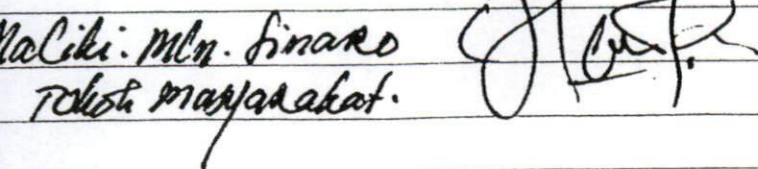 Maliki. Mln. Sinaro
Tokoh masyarakat.